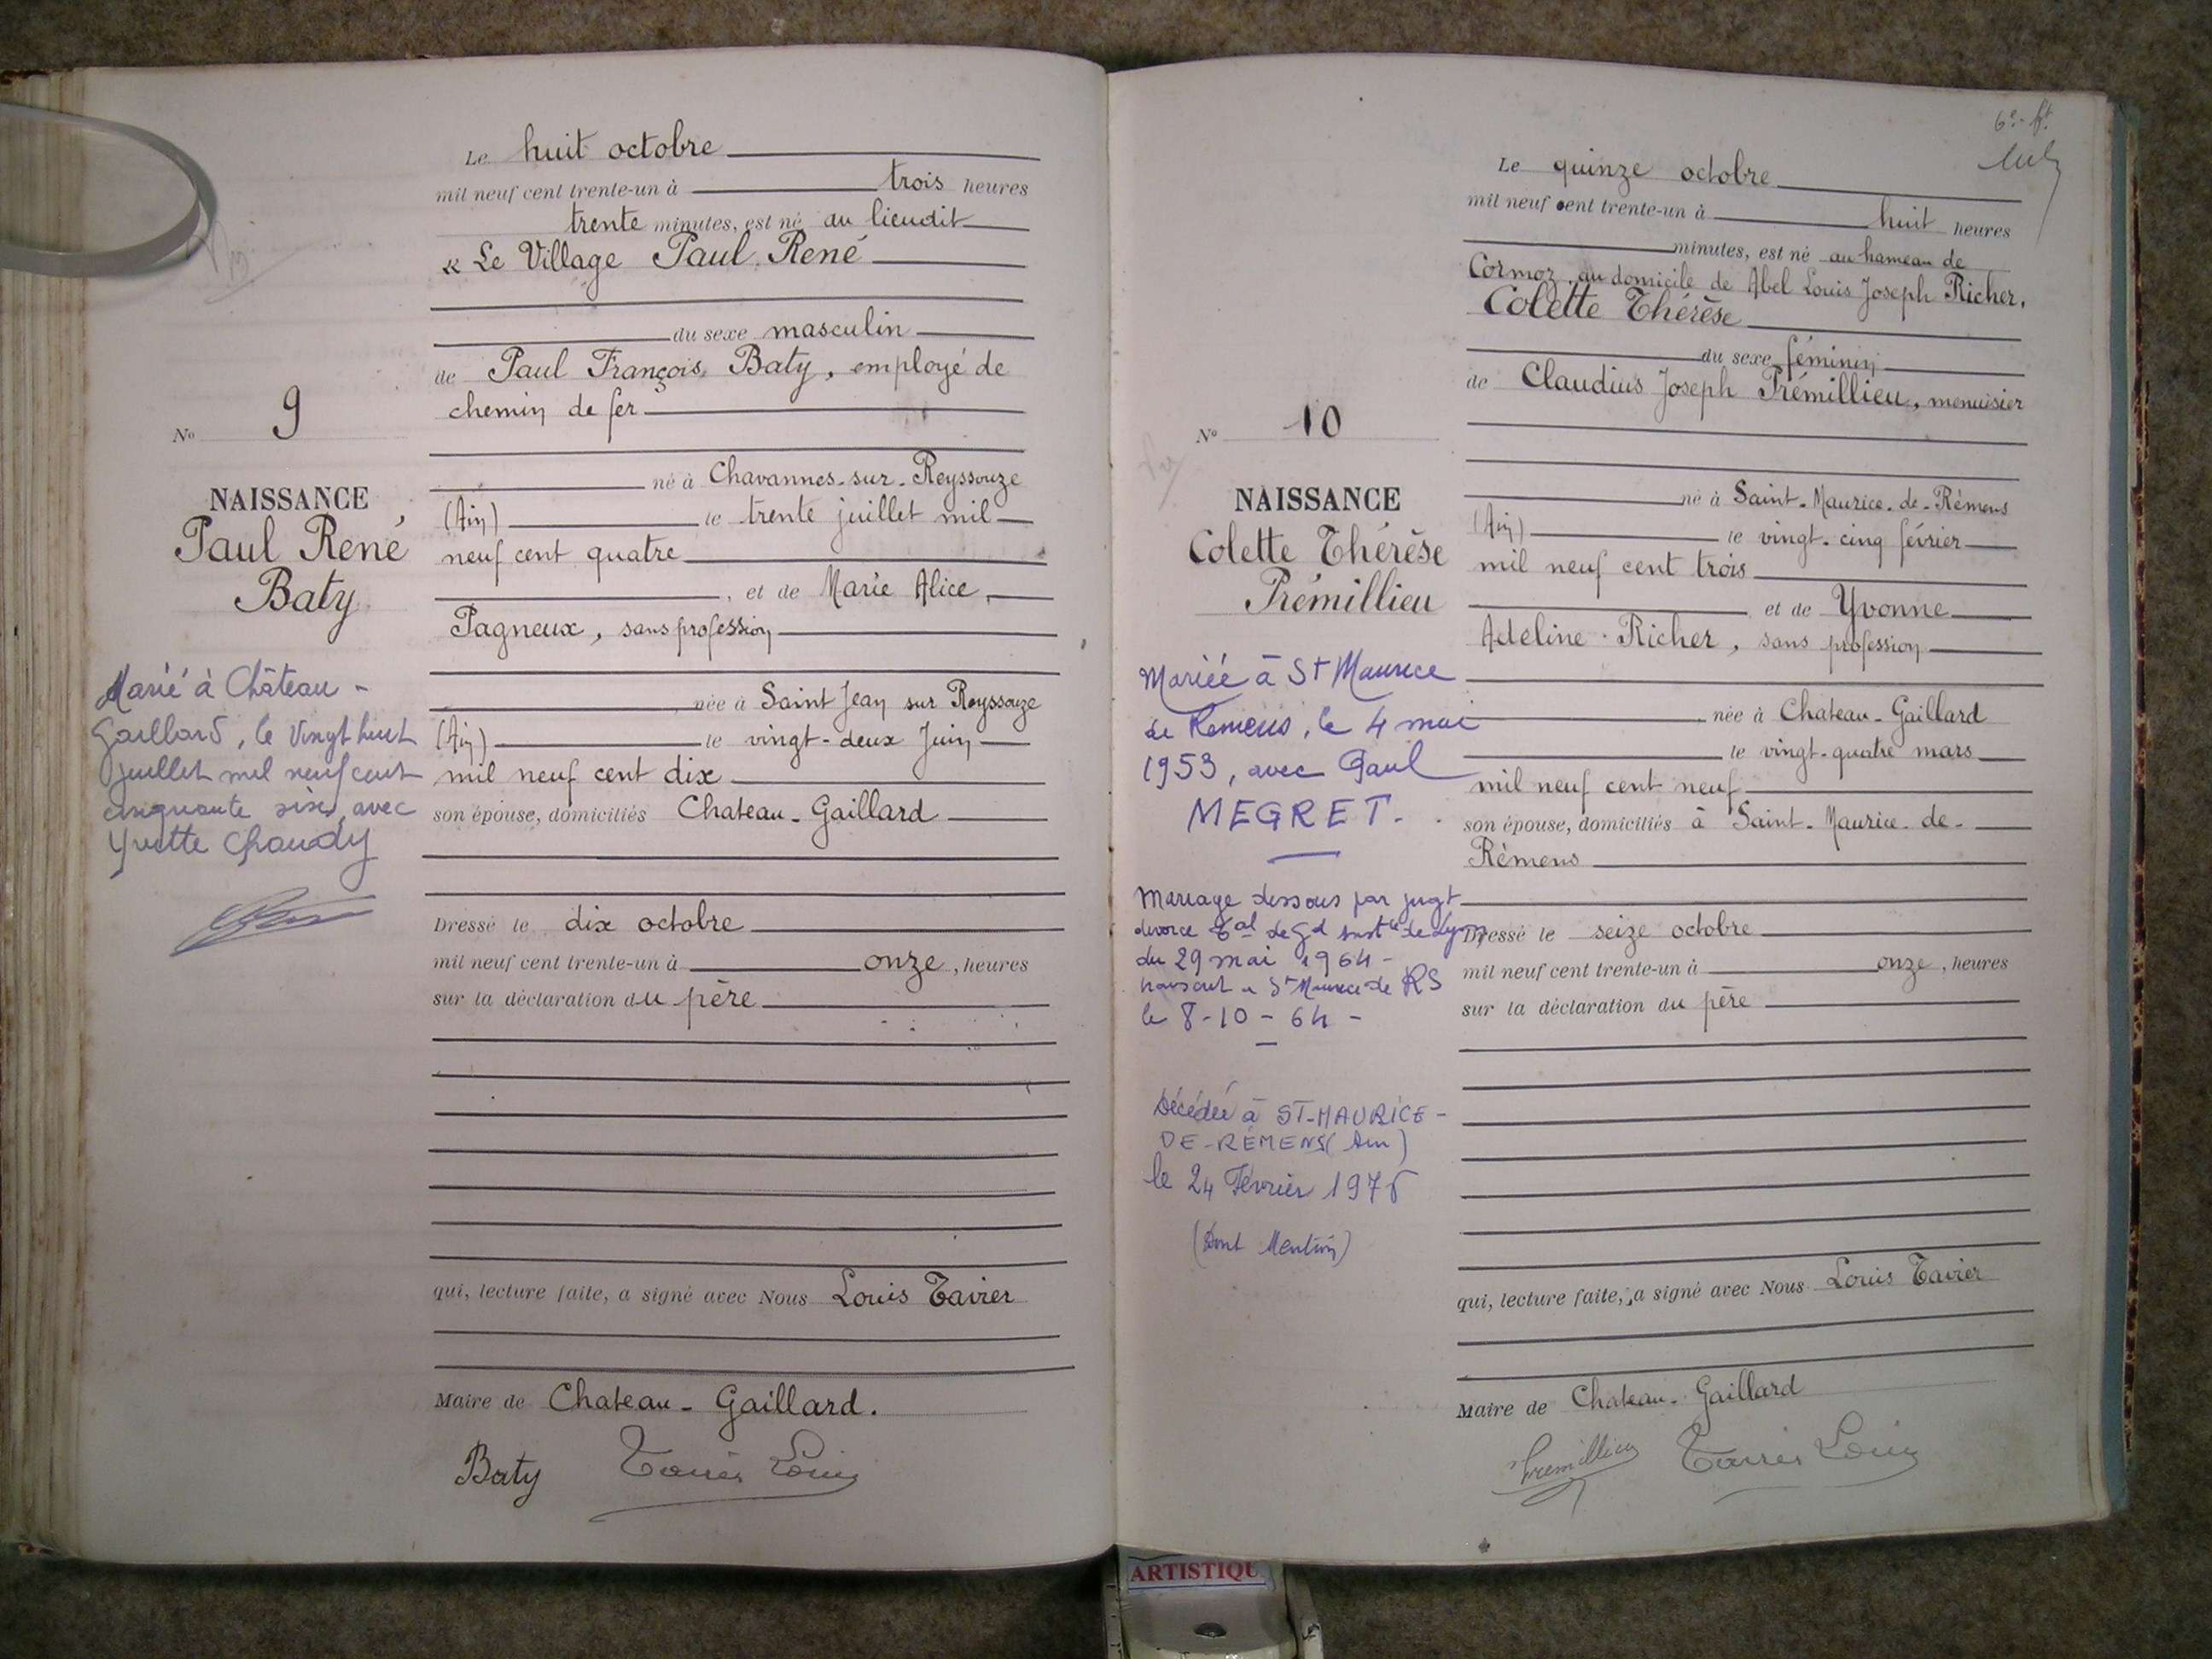 Le huit octobre
mil neuf cent trente-un à trois heures
trente minutes, est né au lieudit
« Le Village Paul René
du sexe masculin
de Paul François Baty, employé de
chemin de fer
né à Chavannes-sur-Reyssouze
(Ain) le trente juillet mil
neuf cent quatre
, et de Marie Alice
Pagneux, sans profession
née à Saint Jean sur Reyssouze
(Ain) le vingt-deux Juin
mil neuf cent dix
son épouse, domiciliés Chateau-Gaillard
Dressé le dix octobre
mil neuf cent trente-un à onze, heures
sur la déclaration du père
qui, lecture faite, a signé avec Nous Louis Tavier
Maire de Chateau-Gaillard.
Baty Tavier Louis
No 9
NAISSANCE
Paul René
Baty
Marié à Château-
Gaillard, le vingt huit
juillet mil neuf cent
cinquante six, avec
Yvette Chaudy
Le quinze octobre
mil neuf cent trente-un à huit heures
minutes, est né au hameau de
Cormoz, au domicile de Abel Louis Joseph Richer,
Colette Thérèse
du sexe féminin
de Claudius Joseph Prémillieu, menuisier
né à Saint-Maurice-de-Rémens
(Ain) le vingt-cinq février
mil neuf cent trois
et de Yvonne
Adeline Richer, sans profession
née à Chateau-Gaillard
le vingt-quatre mars
mil neuf cent neuf
son épouse, domiciliés à Saint-Maurice-de-
Rémens
Dressé le seize octobre
mil neuf cent trente-un à onze, heures
sur la déclaration du père
qui, lecture faite, a signé avec Nous Louis Tavier
Maire de Chateau-Gaillard
Premillieu Tavier Louis
No 10
NAISSANCE
Colette Thérèse
Prémillieu
Mariée à St Maurice
de Remens, le 4 mai
1953, avec Paul
MEGRET.
Mariage dissous par jugt
divorce Tal de Gd Instce de Lyon
du 29 mai 1964 -
transcrit à St Maurice de RS
le 8-10-64 -
Décédée à ST-MAURICE-
DE-RÉMENS (Ain)
le 24 Février
(Dont Mention)
ARTISTIQU